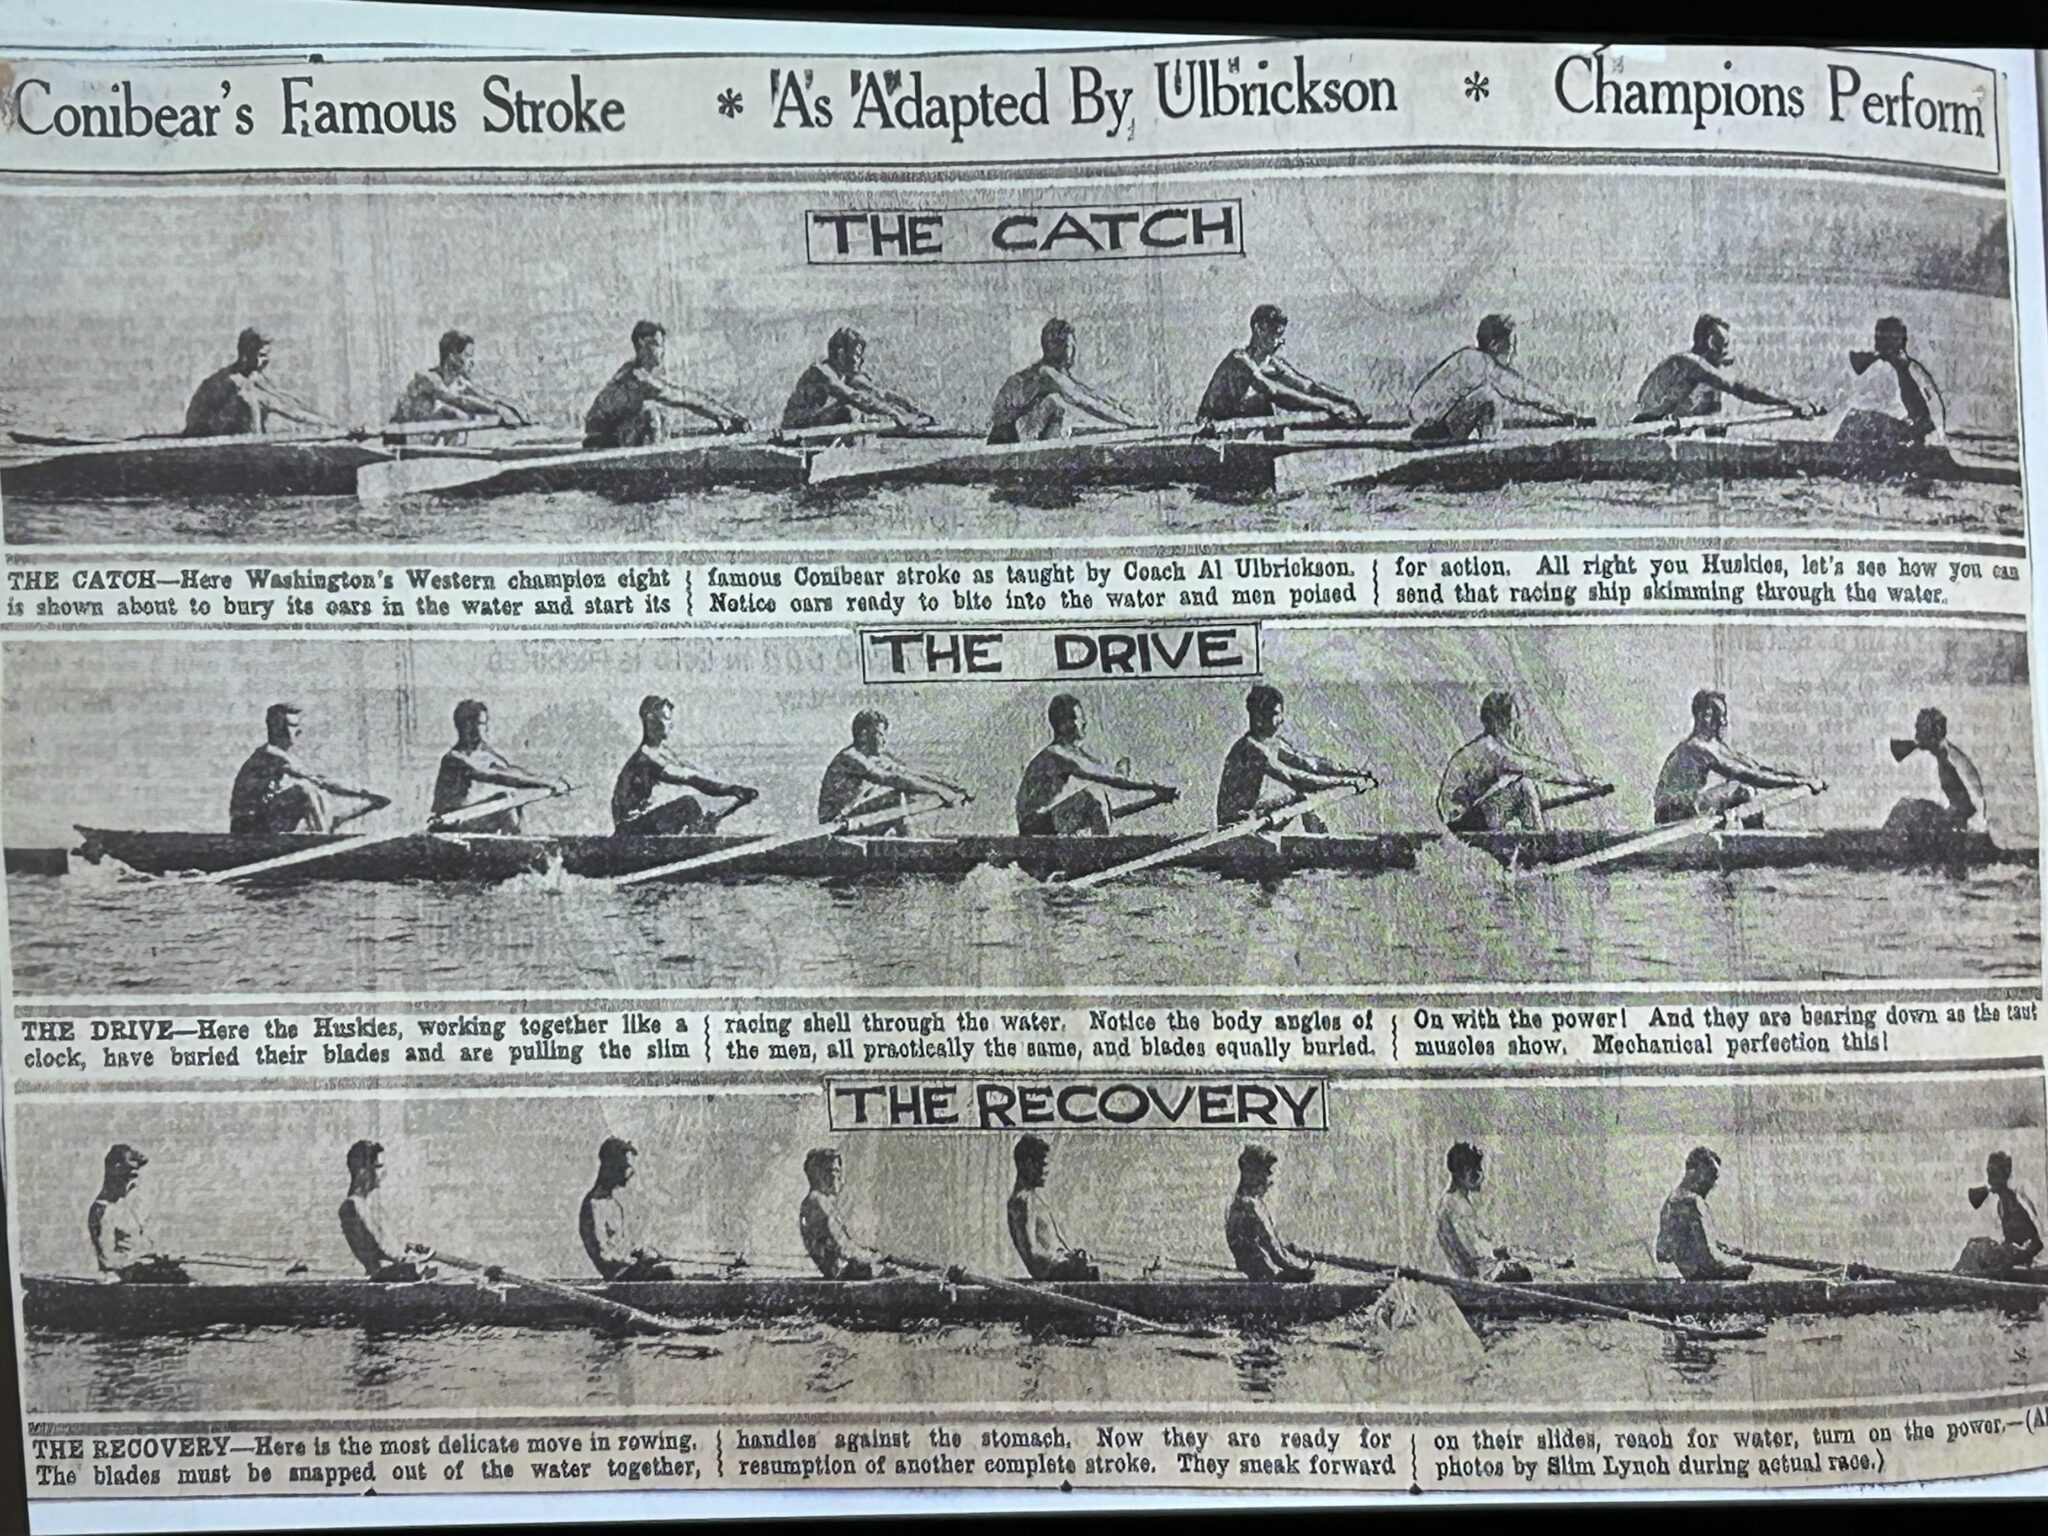 Conibear's Famous Stroke * "As "Adapted By Ulbrickson * Champions Perform
THE CATCH
THE CATCH—Here Washington's Western champion eight
is shown about to bury its oars in the water and start its
famous Conibear stroke as taught by Coach Al Ulbrickson.
Notice oars ready to bite into the water and men poised
for action. All right you Huskies, let's see how you can
send that racing ship skimming through the water.
THE DRIVE
THE DRIVE—Here the Huskies, working together like a
clock, have buried their blades and are pulling the slim
racing shell through the water. Notice the body angles of
the men, all practically the same, and blades equally buried.
On with the power! And they are bearing down as the taut
muscles show. Mechanical perfection this!
THE RECOVERY
THE RECOVERY—Here is the most delicate move in rowing.
The blades must be snapped out of the water together,
handles against the stomach. Now they are ready for
resumption of another complete stroke. They sneak forward
on their slides, reach for water, turn on the power.—(Al
photos by Slim Lynch during actual race.)